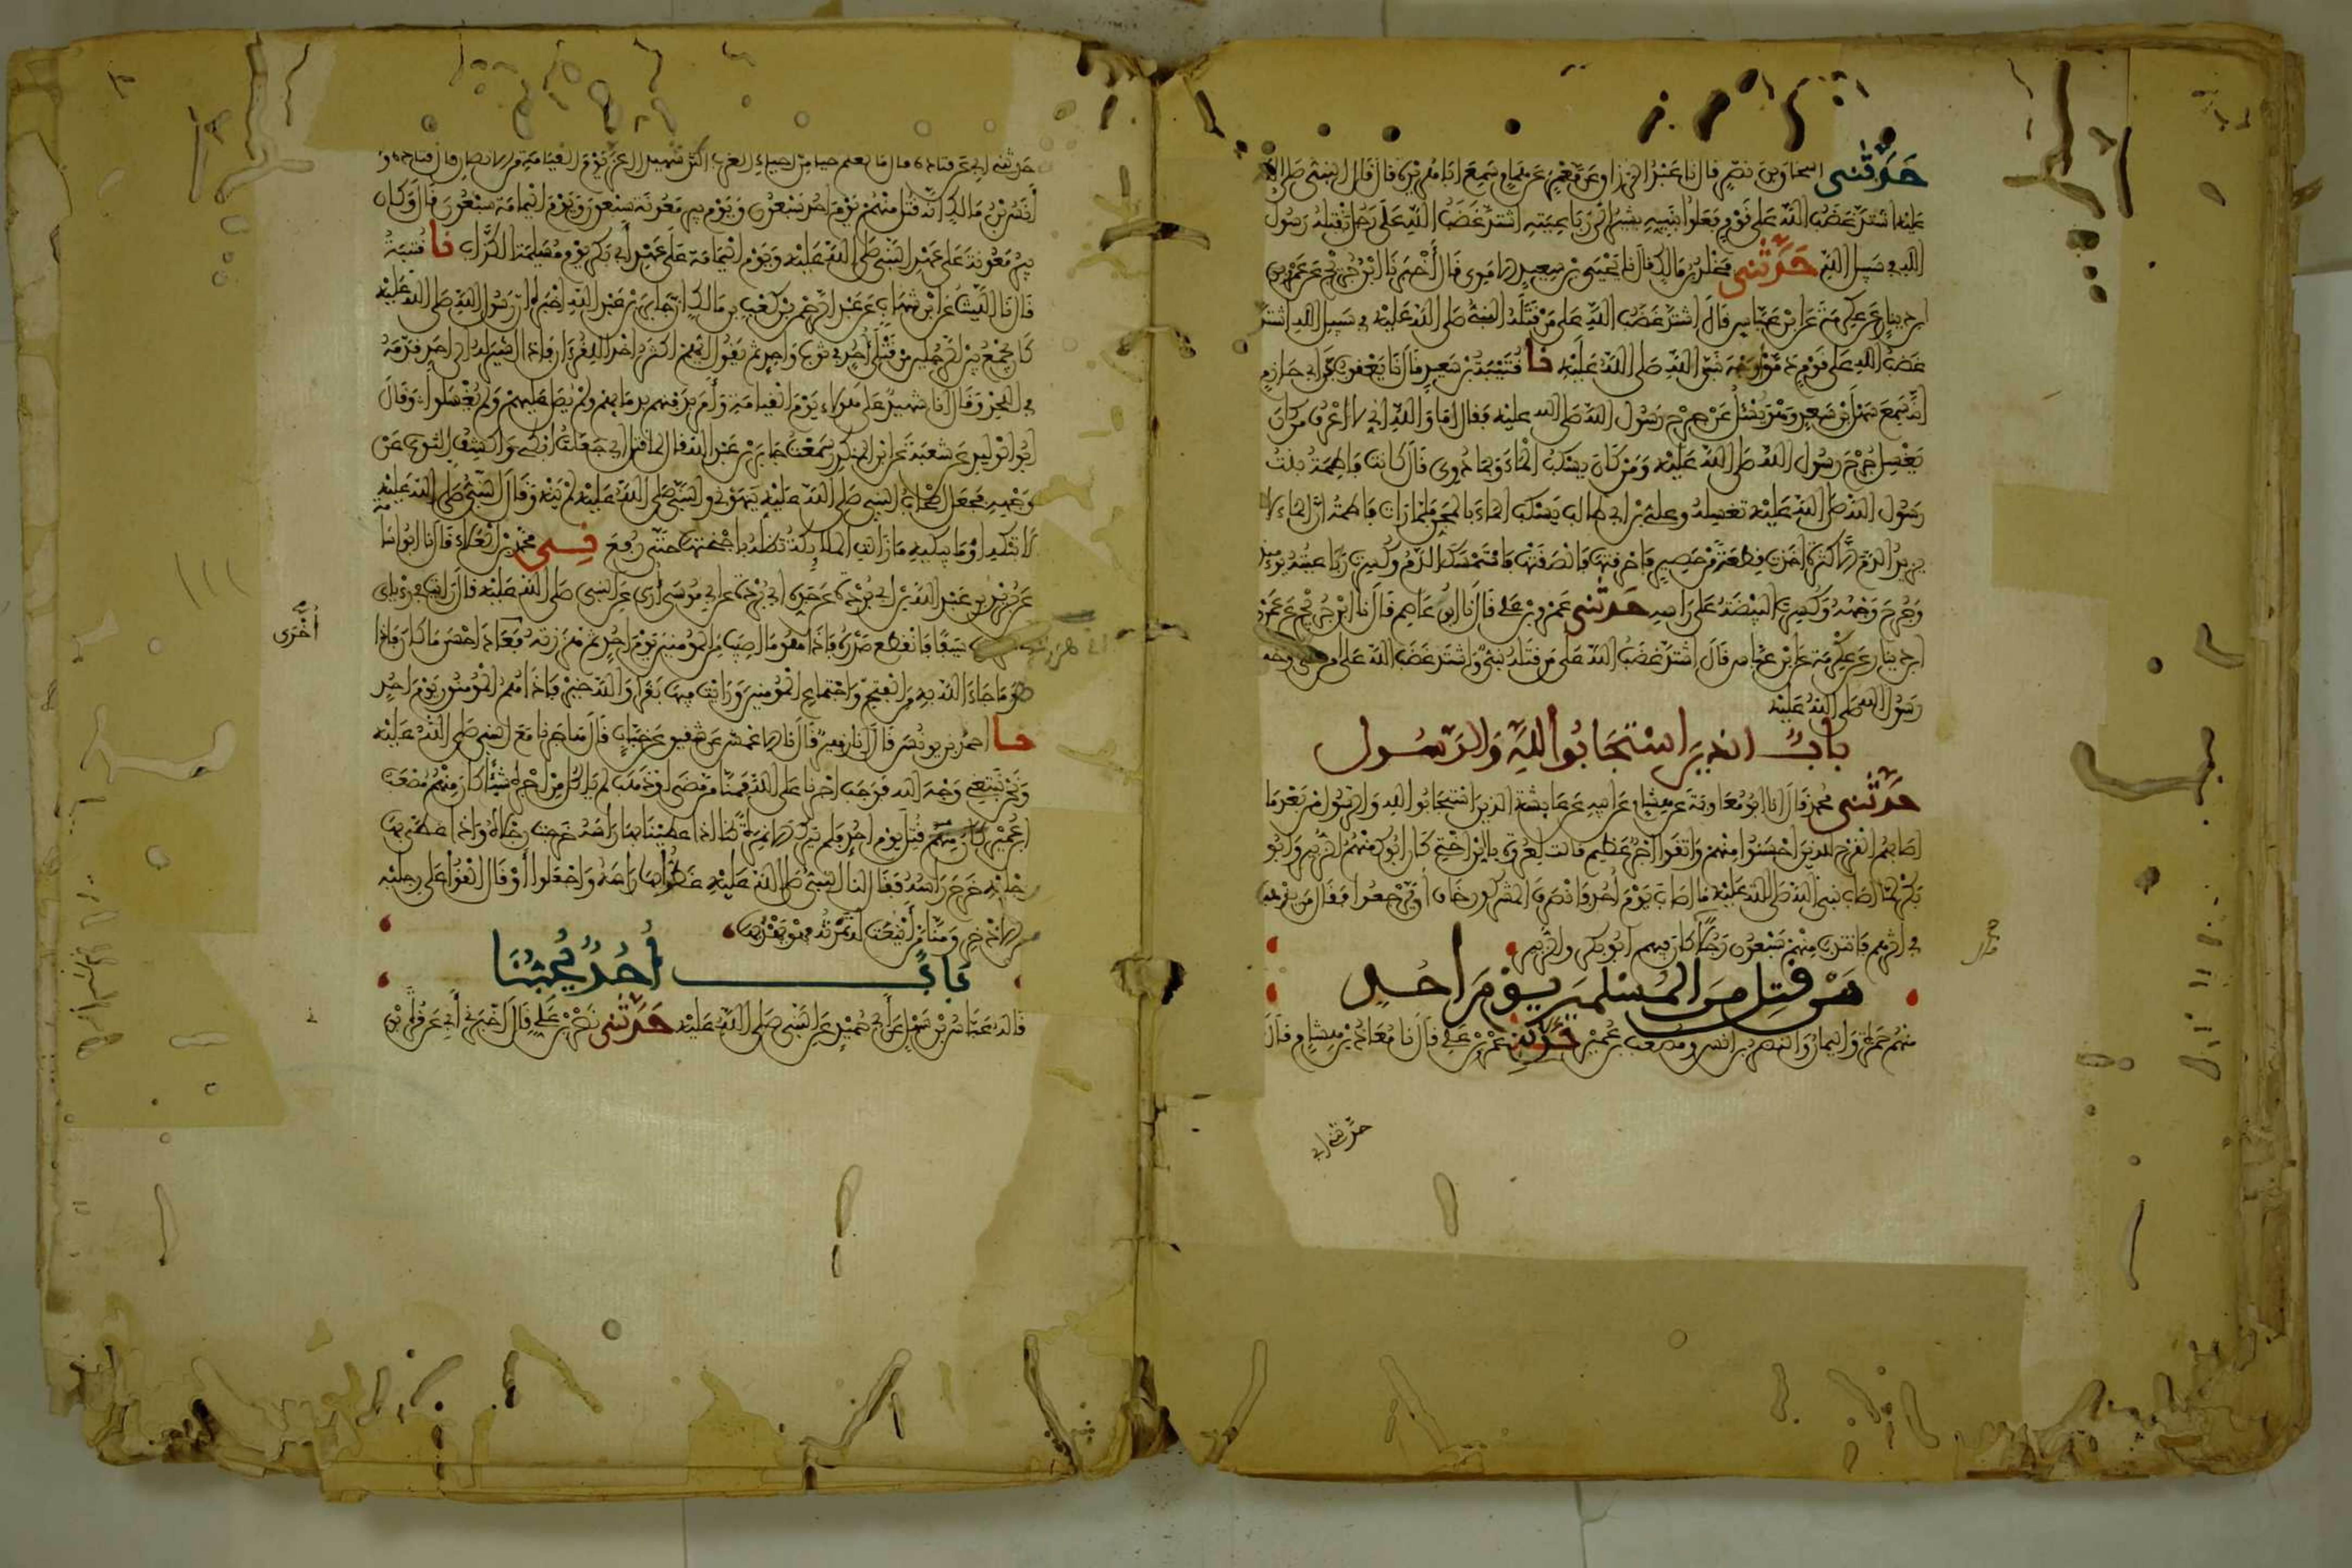 حدثنى اسحاق بن نصر قال نا عبد الرزاق عن معمر عن همام سمع ابا هريرة قال قال النبى صلى الله
عليه اشتد غضب الله على قوم فعلوا بنبيه يشير الى رباعيته اشتد غضب الله على رجل يقتله رسول
الله فى سبيل الله حدثنى مخلد بن مالك قال نا يحيى بن سعيد الاموى قال أخبرنا ابن جريج عن عمرو بن
دينار عن عكرمة عن ابن عباس قال اشتد غضب الله على من قتله النبى صلى الله عليه فى سبيل الله اشتد
غضب الله على قوم دموا وجه نبى الله صلى الله عليه نا قتيبة بن سعيد قال نا يعقوب عن ابى حازم
انه سمع سهل بن سعد وهو يسئل عن جرح رسول الله صلى الله عليه فقال اما والله انى لاعرف من كان
يغسل جرح رسول الله صلى الله عليه ومن كان يسكب الماء وبما دووى قال كانت فاطمة بنت
رسول الله صلى الله عليه تغسله وعلى بن ابى طالب يسكب الماء بالمجن فلما رات فاطمة ان الماء لا
يزيد الدم الا كثرة اخذت قطعة من حصير فاحرقتها فالصقتها فاستمسك الدم وكسرت رباعيته يومئذ
وجرح وجهه وكسرت البيضة على راسه حدثنى عمرو بن على قال نا ابو عاصم قال نا ابن جريج عن عمرو
ابن دينار عن عكرمة عن ابن عباس قال اشتد غضب الله على من قتله نبى واشتد غضب الله على من دمى وجه
رسول الله صلى الله عليه
باب الذين استجابوا لله والرسول
حدثنى محمد قال انا ابو معاوية عن هشام عن ابيه عن عايشة الذين استجابوا لله والرسول من بعد ما
اصابهم القرح للذين احسنوا منهم واتقوا اجر عظيم قالت لعروة يا ابن اختى كان ابوك منهم الزبير وابو
بكر لما اصاب نبى الله صلى الله عليه ما اصاب يوم أحد وانصرف المشركون خاف أن يرجعوا فقال من يذهب
فى اثرهم فانتدب منهم سبعون رجلا كان فيهم ابو بكر والزبير
من قتل من المسلمين يوم احد
منهم حمزة واليمان والنضر بن انس ومصعب بن عمير حدثنى عمرو بن على قال نا معاذ بن هشام قال
حدثنى ابى
حدثنى ابى عن قتادة قال ما نعلم حيا من احياء العرب اكثر شهيدا اعز يوم القيامة من الانصار قال قتادة و
أنس بن مالك انه قتل منهم يوم احد سبعون ويوم بير معونة سبعون ويوم اليمامة سبعون قال وكان
بير معونة على عهد النبى صلى الله عليه ويوم اليمامة على عهد أبى بكر يوم مسيلمة الكذاب نا قتيبة
قال نا الليث عن ابن شهاب عن عبد الرحمن بن كعب بن مالك ان جابر بن عبد الله اخبره ان رسول الله صلى الله عليه
كان يجمع بين الرجلين من قتلى أحد فى ثوب واحد ثم يقول ايهم اكثر اخذا للقرءان فاذا اشير له الى احد قدمه
فى اللحد وقال انا شهيد على هولاء يوم القيامة وأمر بدفنهم بدمايهم ولم يصل عليهم ولم يغسلوا وقال
ابو الوليد عن شعبة عن ابن المنكدر سمعت جابر بن عبد الله قال لما قتل ابى جعلت ابكى واكشف الثوب عن
وجهه فجعل اصحاب النبى صلى الله عليه ينهونى والنبى صلى الله عليه لم ينه وقال النبى صلى الله عليه
لا تبكيه او ما تبكيه ما زالت الملائكة تظله باجنحتها حتى رفع محمد بن العلاء قال نا ابو اسامة
عن بريد بن عبد الله بن ابى بردة عن جده ابى بردة عن ابى موسى أرى عن النبى صلى الله عليه قال رايت فى رءياى
سيفا فانقطع صدره فاذا هو ما اصيب من المومنين يوم احد ثم هززته فعاد احسن ما كان فاذا
هو ما جاء الله به من الفتح واجتماع المومنين ورايت فيها بقرا والله خير فاذا هم المومنون يوم احد
نا احمد بن يونس قال نا زهير قال نا الاعمش عن شقيق عن خباب قال هاجرنا مع النبى صلى الله عليه
ونحن نبتغى وجه الله فوجب اجرنا على الله فمنا من مضى او ذهب لم ياكل من اجره شيئا كان منهم مصعب
ابن عمير قتل يوم احد فلم يترك الا نمرة كنا اذا غطينا بها راسه خرجت رجلاه واذا غطى بها
رجليه خرج راسه فقال لنا النبى صلى الله عليه غطوا بها راسه واجعلوا أو قال القوا على رجليه
من الاذخر ومنا من أينعت له ثمرته فهو يهدبها
باب أحد يحبنا
قاله عباس بن سهل عن أبى حميد عن النبى صلى الله عليه حدثنى نصر بن على قال اخبرنى أبى عن قرة بن
أخرى